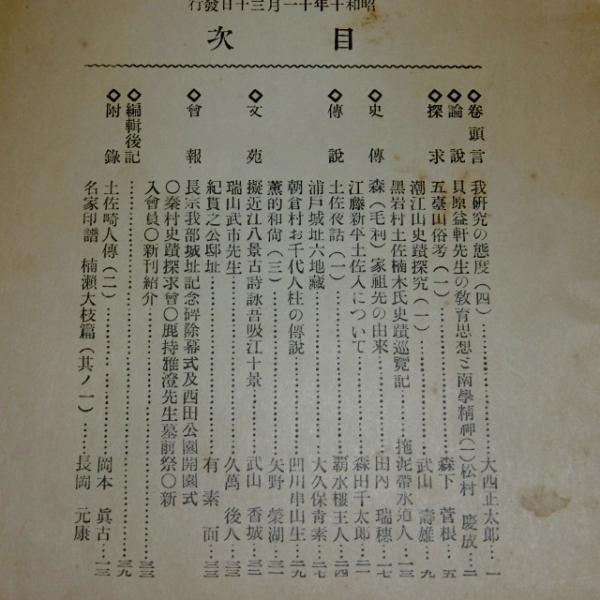 昭和十年十一月三十日發行
目次
◇卷頭言 我硏究の態度(四)‥‥‥大西正太郎‥一
◇論說 貝原益軒先生の敎育思想と南學精神(一)松村 慶成‥二
五臺山俗考(一)‥‥‥森下 菅根‥五
◇探求 潮江山史蹟探究(一)‥‥‥武山 壽雄‥九
黑岩村土佐楠木氏史蹟巡覽記‥‥‥拖泥帶水道人‥一三
◇史傳 森(毛利)家祖先の由來‥‥‥田內 瑞穗‥一七
江藤新平土佐入について‥‥‥森田千太郎‥二一
◇傳說 土佐夜話(一)‥‥‥覇水樓主人‥二四
浦戶城址六地藏‥‥‥大久保靑素‥二七
朝倉村お千代人柱の傳說‥‥‥凹川串山生‥二九
薰的和尙(三)‥‥‥矢野 榮湖‥三一
◇文苑 擬近江八景古詩詠吾吸江十景‥‥‥武山 香城‥三二
瑞山武市先生‥‥‥久萬 後人‥三三
紀貫之公邸址‥‥‥有 素 面‥三三
◇會報 長宗我部城址記念碑除幕式及西田公園開園式
〇秦村史蹟探求會〇鹿持雅澄先生墓前祭〇新
入會員〇新刊紹介‥‥‥三三
◇編輯後記‥‥‥三九
◇附錄 土佐畸人傳(二)‥‥‥岡本 眞古‥一三
名家印譜 楠瀨大枝篇(其ノ一)‥‥‥長岡 元康